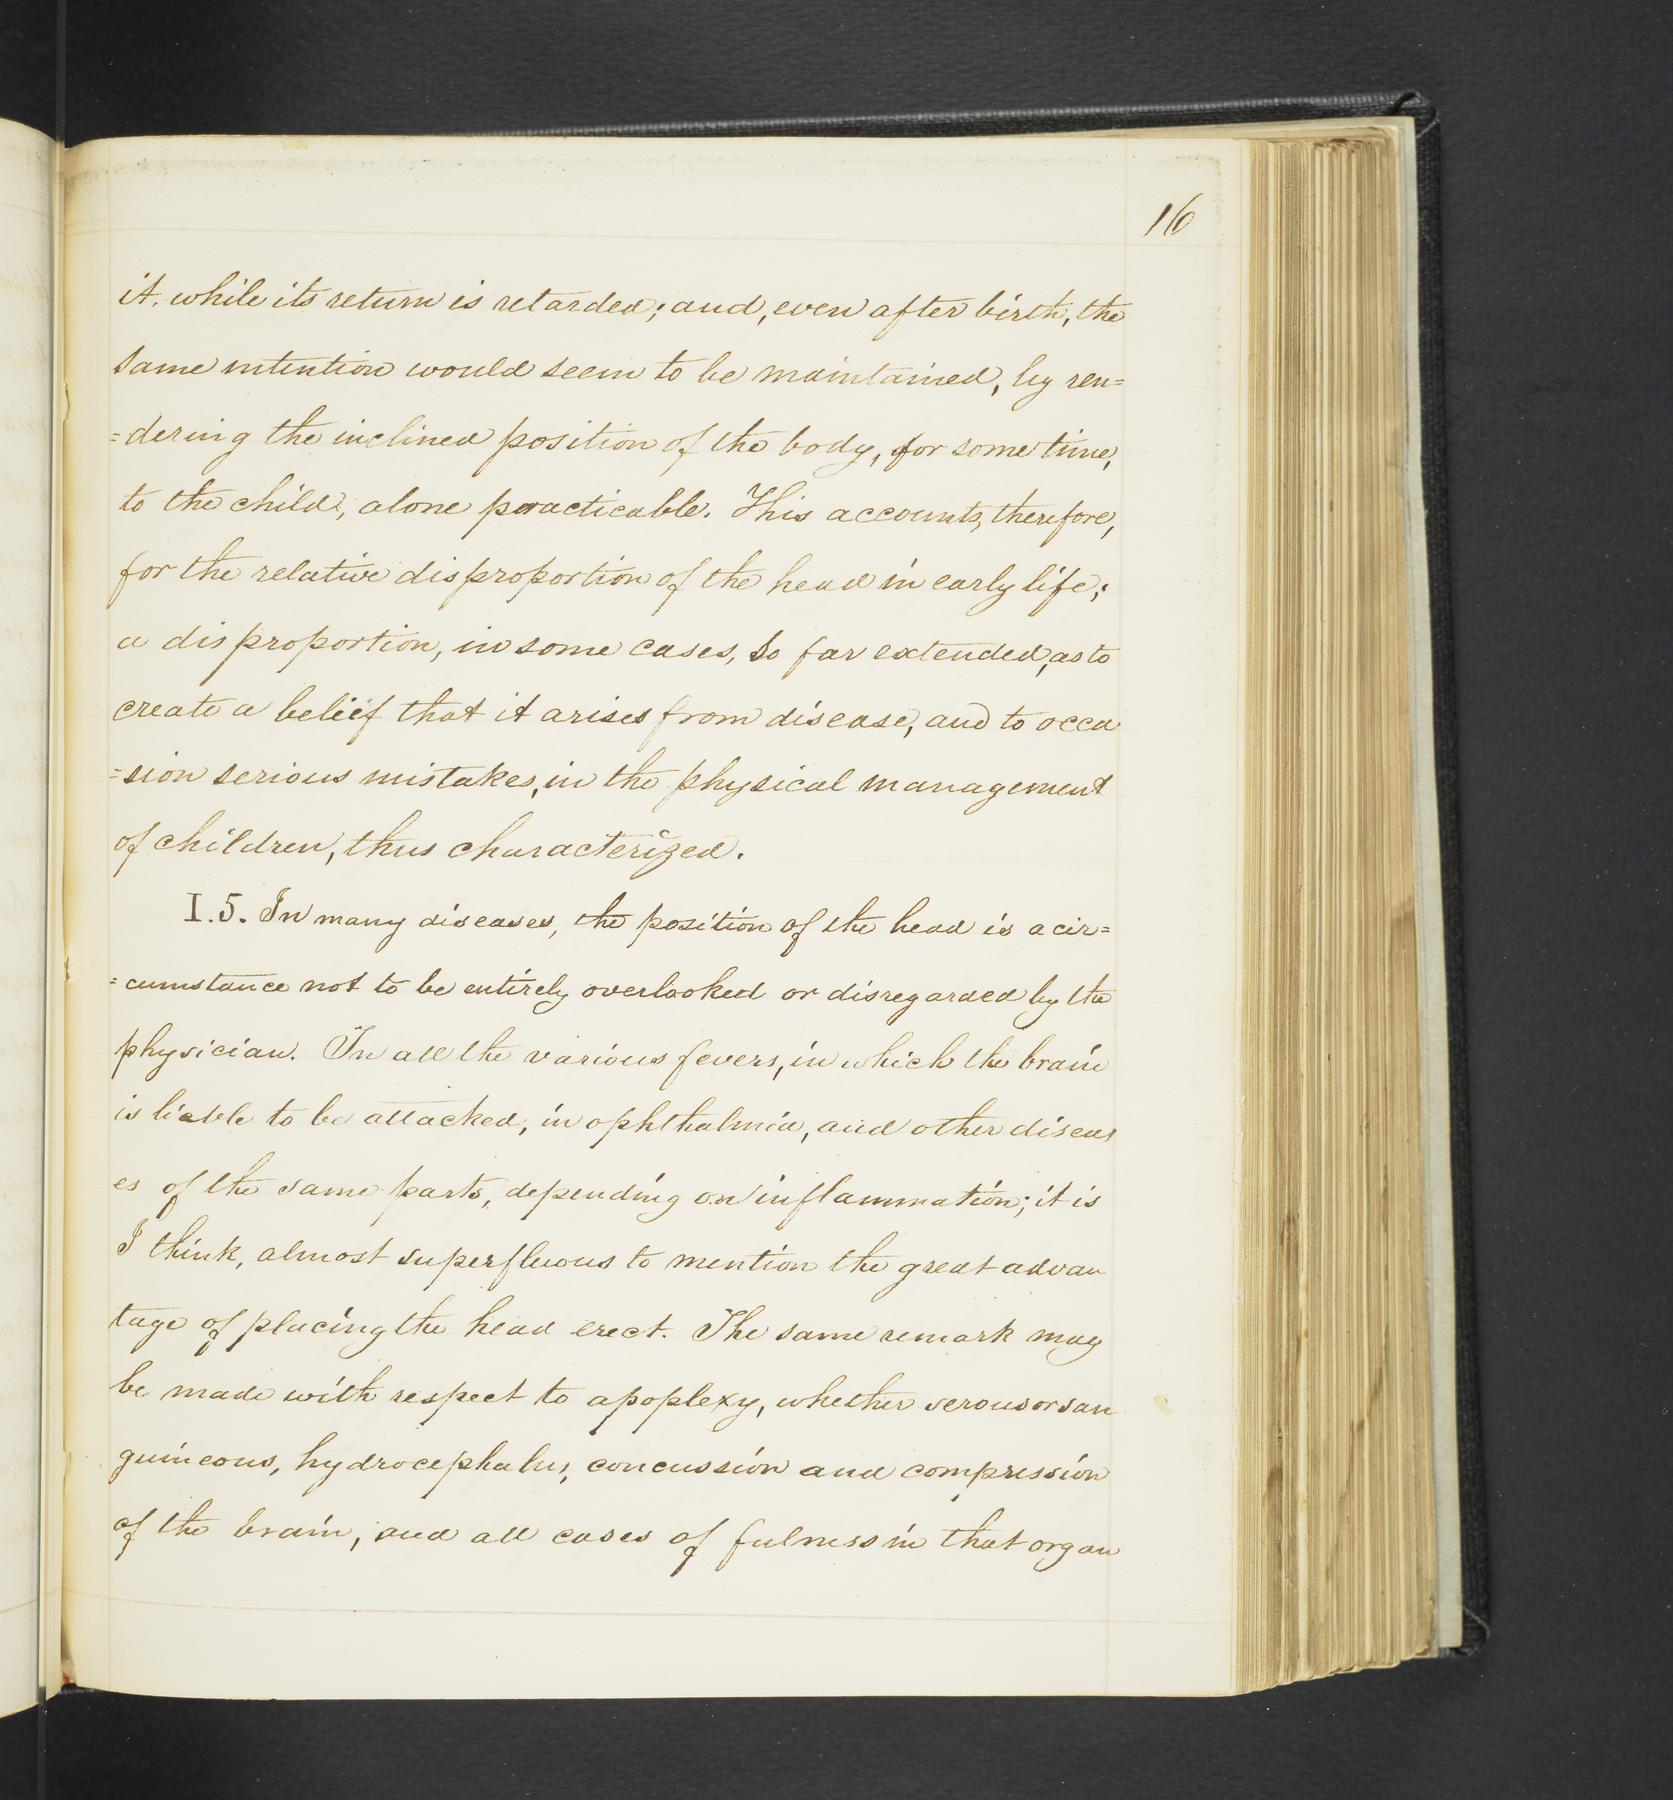 16
it. while its return is retarded; and, even after birth, the
same intention would seem to be maintained, by ren=
=dering the inclined position of the body, for some time,
to the child, alone practicable. This accounts, therefore,
for the relative disproportion of the head in early life;
a disproportion, in some cases, so far extended, as to
create a belief that it arises from disease, and to occa
=sion serious mistakes, in the physical management
of children, thus characterized.
I.5. In many diseases, the position of the head is a cir=
=cumstance not to be entirely overlooked or disregarded by the
physician. In all the various fevers, in which the brain
is liable to be attacked, in ophthalmia, and other diseas
es of the same parts, depending on inflammation; it is
I think, almost superfluous to mention the great advan
tage of placing the head erect. The same remark may
be made with respect to apoplexy, whether serous or san
guineous, hydrocephalus, concussion and compression
of the brain, and all cases of fulness in that organ